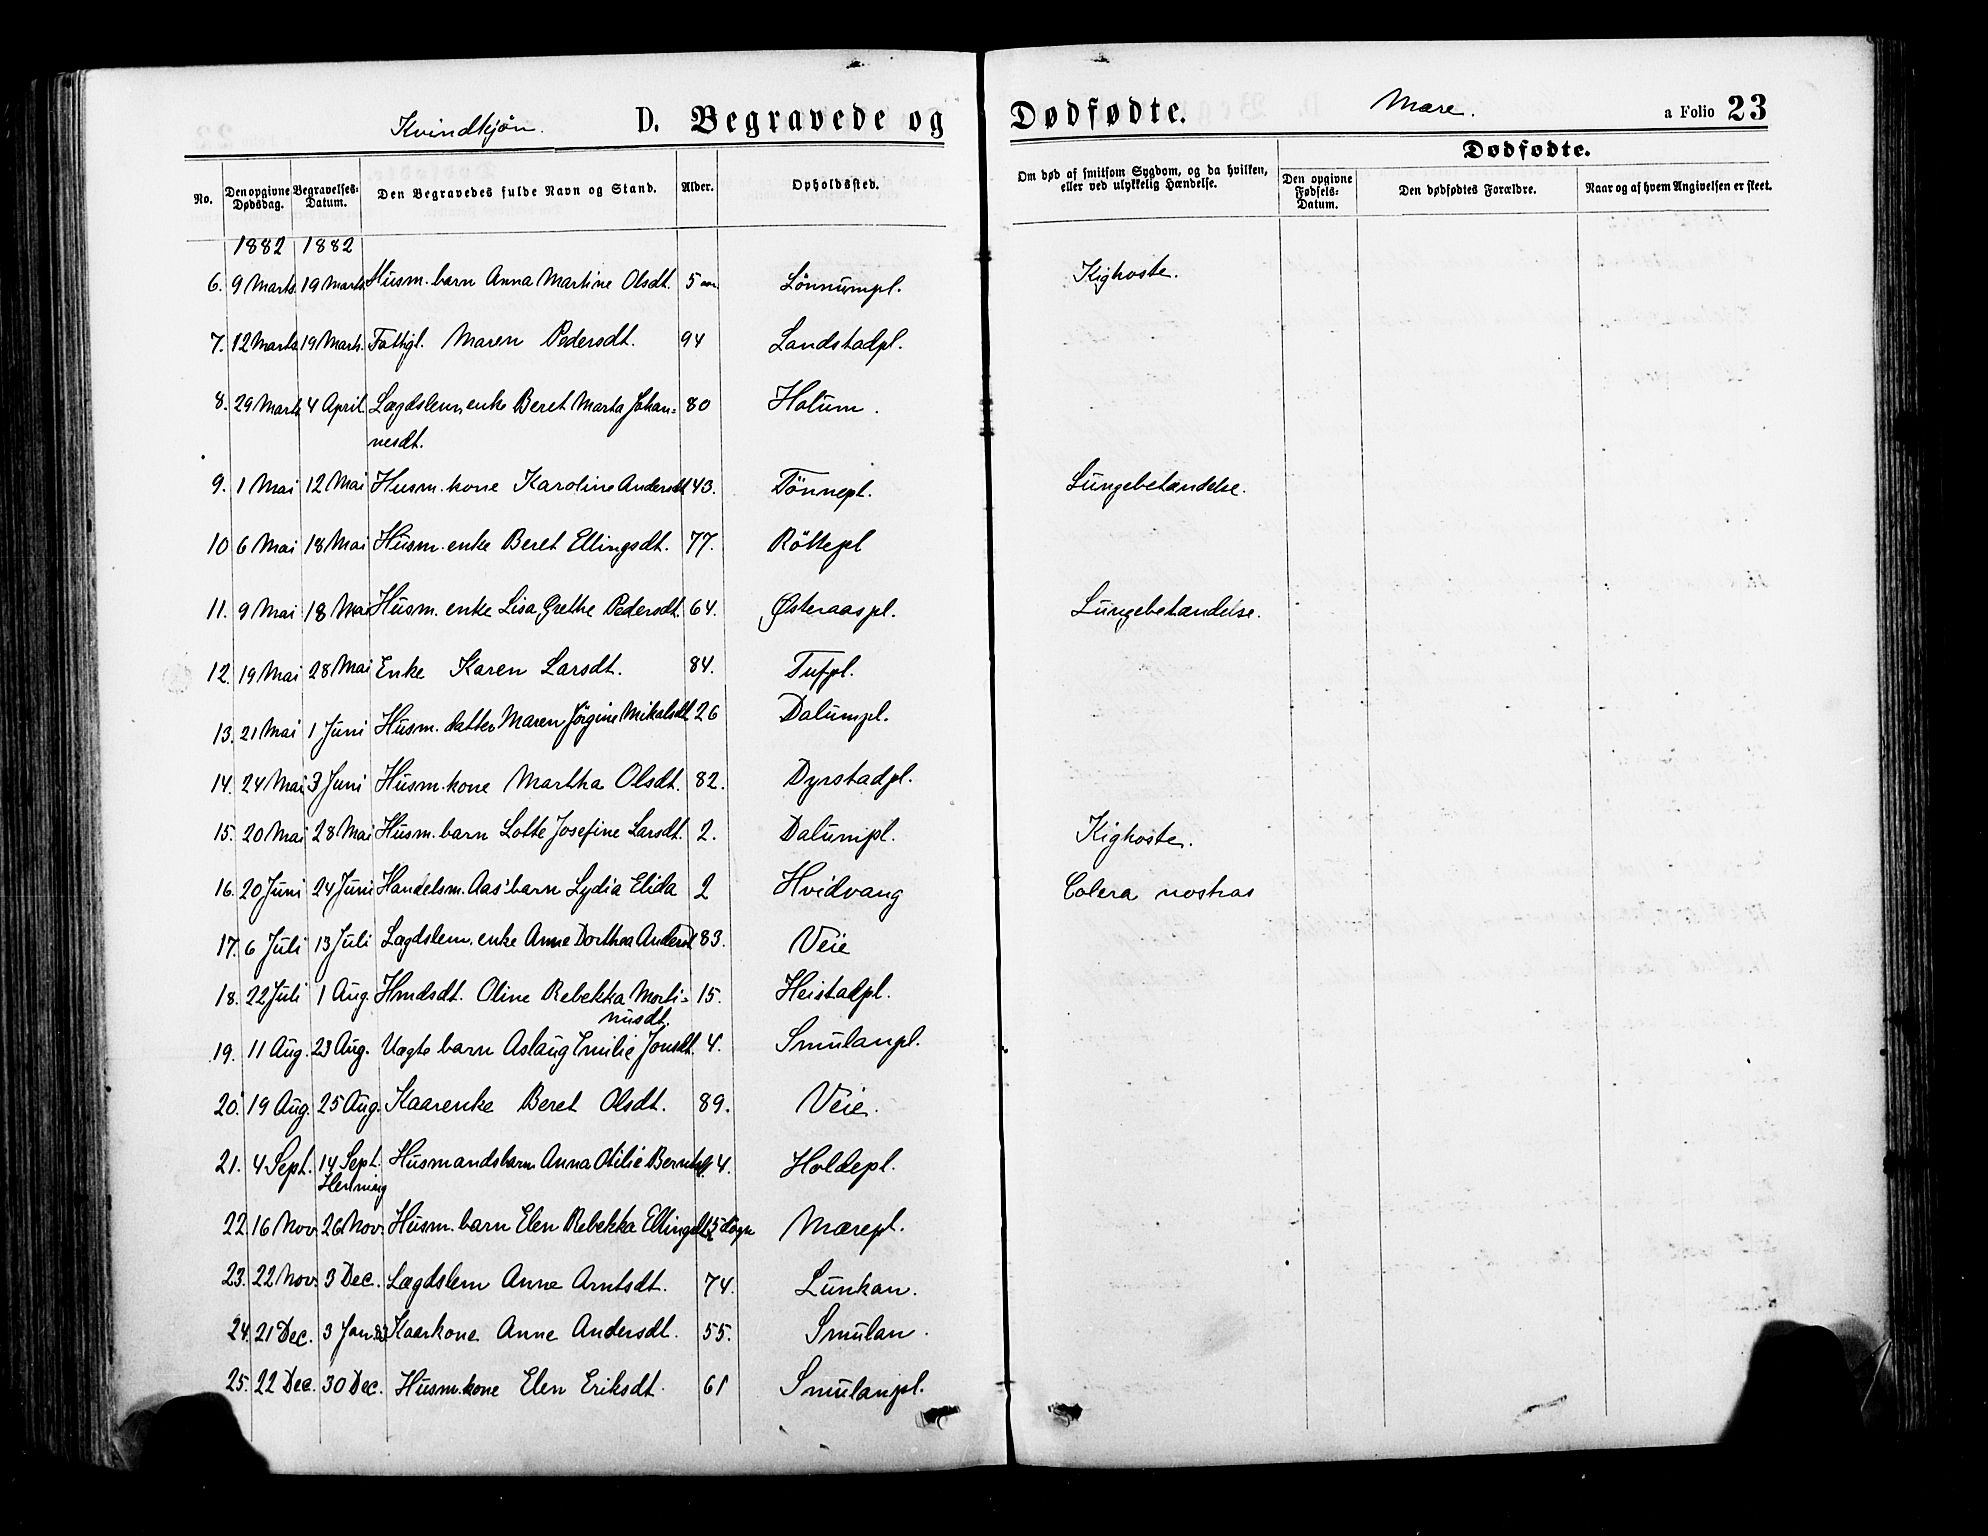 Kvindkjön. D. Begravede og Dødfødte. Mære. a Folio 23
No. Den opgivne Dødsdag. Begravelses-Datum. Den Begravedes fulde Navn og Stand. Alder. Opholdssted. Om død af smitsom Sygdom, og da hvilken, eller ved ulykkelig Hændelse. Dødfødte. Den opgivne Fødsels-Datum. Den dødfødtes Forældre. Naar og af hvem Angivelsen er skeet.
1882 1882
6. 9 Marts 19 Marts Husm. barn Anna Martine Olsdt. 5 aar Lönnumpl. Kighoste.
7. 12 Marts 19 Marts. Fattigl. Maren Pedersdt. 94 Landstadpl.
8. 29 Marts 4 April. Lægdslem, enke Beret Marta Johan=
nesdt. 80 Halum.
9. 1 Mai 12 Mai Husm. kone Karoline Andersdt 43. Tönnepl. Lungebetændelse.
10 6 Mai 18 Mai Husm. enke Beret Ellingsdt. 77. Röttepl
11. 9 Mai 18 Mai Husm. enke Lisa Grethe Pedersdt. 64. Østeraaspl. Lungebetændelse.
12. 19 Mai 28 Mai Enke Karen Larsdt. 84. Tufpl.
13. 21 Mai 1 Juni Husm. datter Maren Jörgine Mikalsdt 26 Dalumpl.
14. 24 Mai 3 Juni Husm. kone Martha Olsdt. 82. Dyrstadpl.
15. 20 Mai 28 Mai Husm. barn Lotte Josefine Larsdt. 2. Dalumpl. Kighoste.
16. 20 Juni 24 Juni Handelsm. Aas' barn Lydia Elida 2 Hvidvang Colera nostras
17. 6 Juli 13 Juli Lægdslem. enke Anne Dorthea Andersdt 83. Veie
18. 22 Juli 1 Aug. Hmdsdt. Oline Rebekka Morti=
nusdt. 15. Heistadpl.
19. 11 Aug. 23 Aug. Uægte barn Aslaug Emilie Jonsdt. 4. Smulanpl.
20. 19 Aug. 25 Aug. Kaarenke Beret Olsdt. 89. Veie.
21. 4 Sept. 14 Sept. Husmandsbarn Anna Otilie Berntsdt. 4. Holdepl.
Henning
22. 16 Nov. 26 Nov. Husm. barn Elen Rebekka Ellingsdt. 5 dage Mærepl.
23. 22 Nov. 3 Dec. Lægdslem Anne Arntsdt. 74. Lunkan.
24. 21 Dec. 3 Jan. 83 Kaarkone Anne Andersdt. 55. Smulan.
25. 22 Dec. 30 Dec. Husm. kone Elen Eriksdt. 61 Smulanpl.